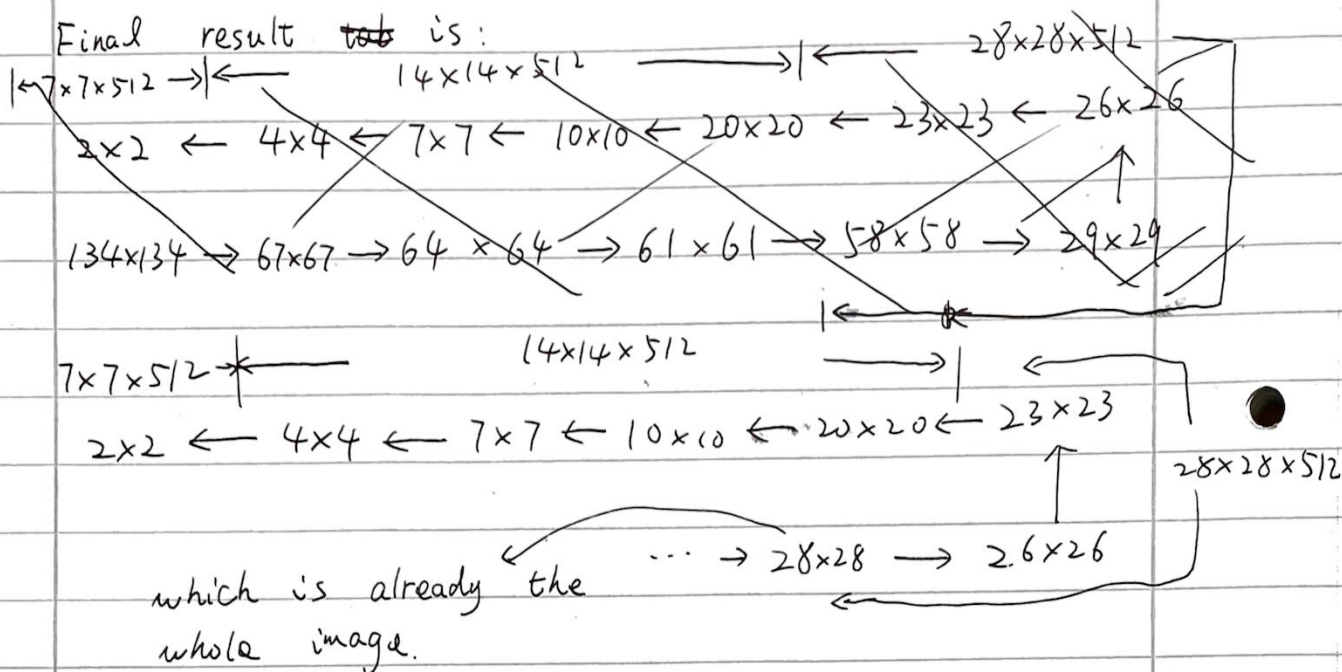 Final result is:
28×28×512
|←7×7×512→|← 14×14×512 →|←
2×2 ← 4×4 ← 7×7 ← 10×10 ← 20×20 ← 23×23 ← 26×26
↑
134×134 → 67×67 → 64×64 → 61×61 → 58×58 → 29×29
7×7×512 14×14×512
2×2 ← 4×4 ← 7×7 ← 10×10 ← 20×20 ← 23×23
28×28×512
↑
... → 28×28 → 26×26
which is already the
whole image.